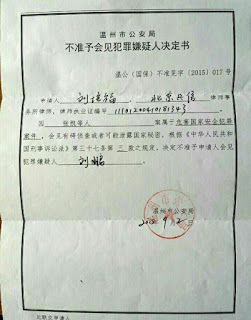 温州市公安局
不准予会见犯罪嫌疑人决定书
温公(国保)不准见字〔2015〕017号
申请人 ,北京 律师事
务所律师,律师执业证编号
因 张凯等人 案属于危害国家安全犯罪
案件,会见有碍侦查或者可能泄露国家秘密,根据《中华人民共和
国刑事诉讼法》第三十七条第三款之规定,决定不准予申请人会见
犯罪嫌疑人 刘鹏
2015年9月2日
此联交申请人